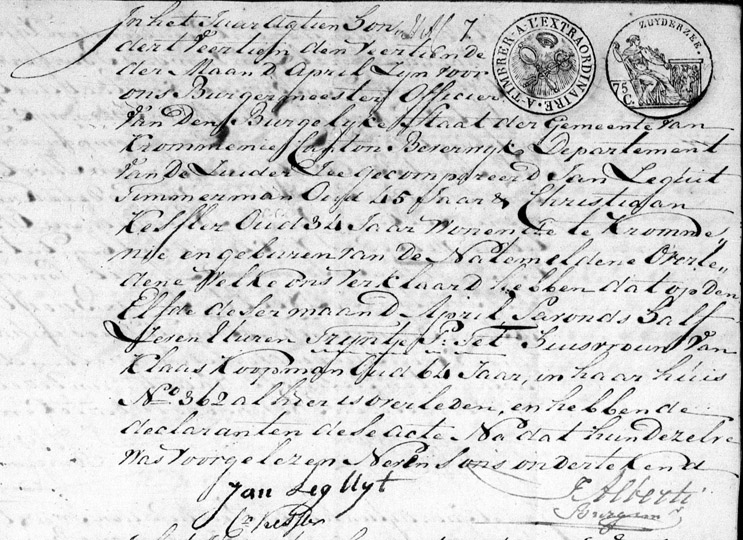 In het Jaar Agtien Hon
dert Veertien den Veertiende
der Maand April Zyn voor
ons Burgermeester Officier
van Den Burgelyke Staat der Gemeente van
Krommenie Canton Beverwyk Departement
van de Zuider Zee gecompareerd Jan Leguit
Timmerman Oud 45 Jaar & Christiaan
Kessler Oud 34 Jaar Wonende te Kromme
nie en geburen van de Natemeldene Overle
dene Welke ons Verklaard hebben dat op den
Elfde deser maand April s'avonds half
Seven Uuren Tryntje P: Tet huisvrouw van
Klaas Koopman Oud 64 Jaar, in haar huis
No. 362 alhier is overleden, en hebben de
declaranten dese acte Na dat hun dezelve
was voorgelezen Nevens ons ondertekend
Jan Leg Uyt
F Alberti
Burgem
Kessler
A·TIMBRER·A·L'EXTRAORDINAIRE
ZUYDERZEE.
75 C.